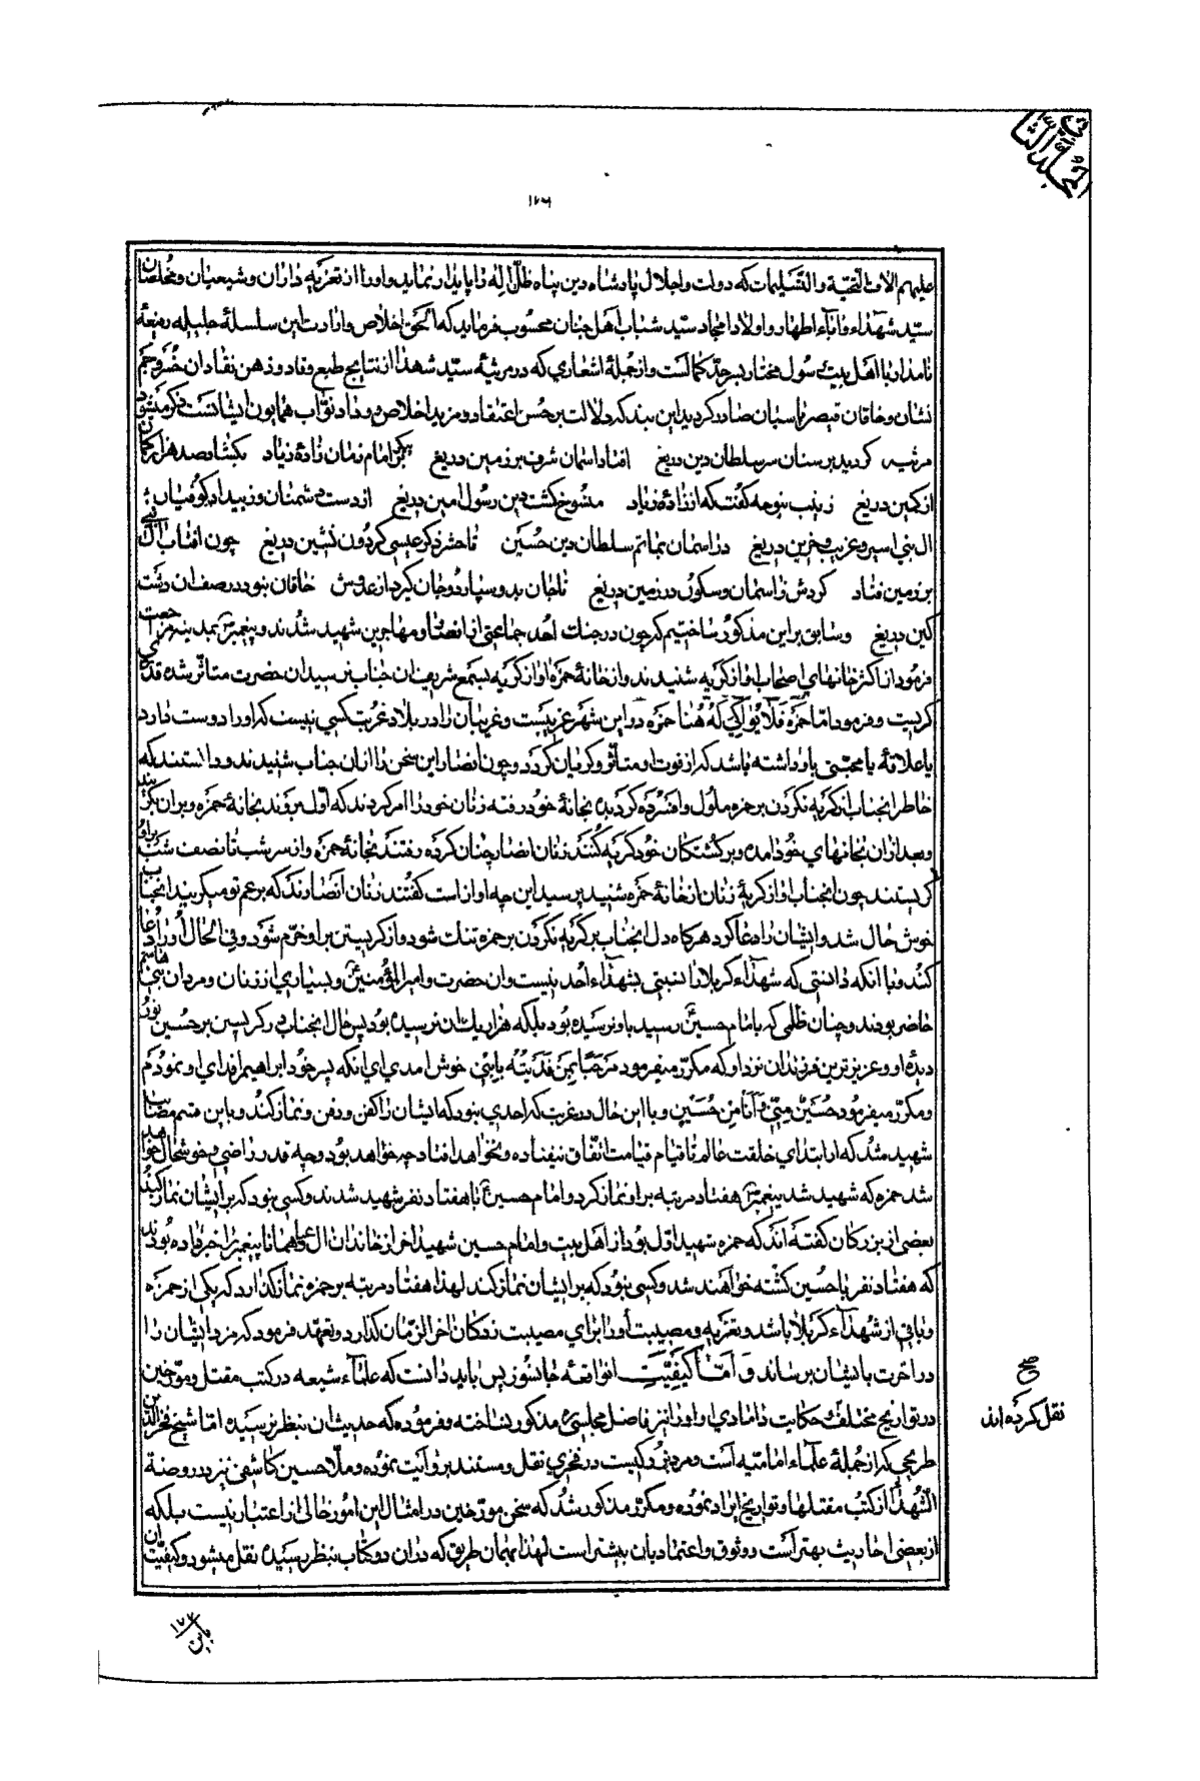 المجلد الثانی
۱۷۶
علیهم الاف التحیة والتسلیمات که دولت واجلال پادشاه دین پناه ظل اله را پایدار نماید واورا از تعزیه داران وشیعیان ومخلصان
سید شهداء واباء اطهار واولاد امجاد سید شباب اهل جنان محسوب فرماید که الحق اخلاص وارادت این سلسلهٔ جلیله رفیعهٔ
نامدار با اهل بیت رسول مختار بسرحد کمالست وازجملهٔ اشعاری که در مرثیهٔ سید شهدا از نتایج طبع وقاد وذهن نقاد ان خسرو جم
نشان وخاقان قیصر پاسبان صادر کردیده این بند که دلالت بر حسن اعتقاد ومزید اخلاص و وداد نواب همایون ایشانست ذکر میشود
مرثیه کردید بر سنان سر سلطان دین دریغ افتاد اسمان شرف بر زمین دریغ بر یک امام زمان زادهٔ زیاد بکشاد صد هزار کمان
از کمین دریغ زینب بنوحه کفت که از زادهٔ زیاد منسوخ کشت دین رسول امین دریغ از دست دشمنان وز بیداد کوفیان
ال نبی اسیر وغریب وحزین دریغ در اسمان بماتم سلطان دین حسین تا حشر ذکر عیسی کردون نشین دریغ چون افتاب ال نبی
بر زمین فتاد کردش ز اسمان وسکون در زمین دریغ تا جان بدو سپارد وجان کیرد از عدوش خاقان نبود در صف ان دشت
کین دریغ وسابق بر این مذکور ساختیم که چون در جنک احد جماعتی از انصار ومهاجرین شهید شدند وپیغمبر بمدینه مراجعت
فرمود از اکثر خانهای اصحاب اواز کریه شنیدند واز خانهٔ حمزه اواز کریه بسمع شریف ان جناب نرسید ان حضرت متاثر شده قدری
کریست وفرمود اما حمزه فلا بواکی له هنا حمزه در این شهر غریبست وغریبان را در بلاد غربت کسی نیست که اورا دوست دارد
یا علاقهٔ یا محبتی باو داشته باشد که از فوت او متاثر وکریان کردد وچون انصار این سخن را از ان جناب شنیدند ودانستند که
خاطر انجناب از کریه نکردن بر حمزه ملول وافسرده کردیده بخانهٔ خود رفته زنان خود را امر کردند که اول بروند بخانهٔ حمزه وبر ان بکریند
وبعد از ان بخانهای خود امده وبر کشتکان خود کریه کنند زنان انصار چنان کرده رفتند بخانهٔ حمزه واز سر شب تا نصف شب بر او
کریستند چون انجناب اواز کریهٔ زنان از خانهٔ حمزه شنید پرسید این چه اواز است کفتند زنان انصارند که بر عم تو میکریند انجناب
خوش حال شد وایشان را دعا کرد هر کاه دل انجناب بر کریه نکردن بر حمزه تنک شود واز کریستن بر او خرم شود وفی الحال اورا دعا
کند وبا انکه دانستی که شهداء کربلا را نسبتی بشهداء احد نیست وان حضرت وامیر المؤمنین وبسیاری از زنان ومردان بنی هاشم
حاضر بودند وچنان ظلمی که بامام حسین رسید باو نرسیده بود بلکه هزار یک ان نرسیده بود پس حال انجناب در کریستن بر حسین نور
دیدهٔ او وعزیزترین فرزندان نزد او که مکرر میفرمود مرحبا بمن فدیته بابنی خوش امدی ای انکه پسر خود ابراهیم را فدای او نمودم
ومکرر میفرمود حسین منی وانا من حسین وبا این حال در غربت که احدی نبود که ایشان را کفن ودفن ونماز کند وباین قسم مصایب
شهید شد که از ابتدای خلقت عالم تا قیام قیامت اتفاق نیفتاده ونخواهد افتاد چه خواهد بود وچه قدر راضی وخوشحال خواهد
شد حمزه که شهید شد پیغمبر هفتاد مرتبه بر او نماز کرد وامام حسین با هفتاد نفر شهید شدند وکسی نبود که بر ایشان نماز کند
بعضی از بزرکان کفته اند که حمزه شهید اول بود از اهل بیت وامام حسین شهید اخر از خاندان ال عبا وهمانا پیغمبر را خبر داده بودند
که هفتاد نفر با حسین کشته خواهند شد وکسی نبود که بر ایشان نماز کند لهذا هفتاد مرتبه بر حمزه نماز کذارد که یکی از حمزه
وباقی از شهداء کربلا باشد وتعزیه ومصیبت اورا برای مصیبت زدکان اخر الزمان کذارد وتعهد فرمود که مزد ایشان را
در اخرت بایشان برساند و اما کیفیت انواقعهٔ جانسوز پس باید دانست که علماء شیعه در کتب مقتل ومورخین
در تواریخ مختلف حکایت دامادی او را نیز فاضل مجلسی مذکور نساخته وفرموده که حدیث ان بنظر نرسیده اما شیخ فخر الدین
طریحی که از جملهٔ علماء امامیه است ومرد بزرکیست در فخری نقل ومستند بروایت نموده وملا حسین کاشفی نیز در روضة
الشهدا از کتب مقتلها وتواریخ ایراد نموده ومکرر مذکور شد که سخن مورخین در امثال این امور خالی از اعتبار نیست بلکه
از بعضی احادیث بهتر است و وثوق واعتماد بان بیشتر است لهذا بهمان طریق که در ان دو کتاب بنظر رسیده نقل میشود وکیفیت ان
صح
نقل کرده اند